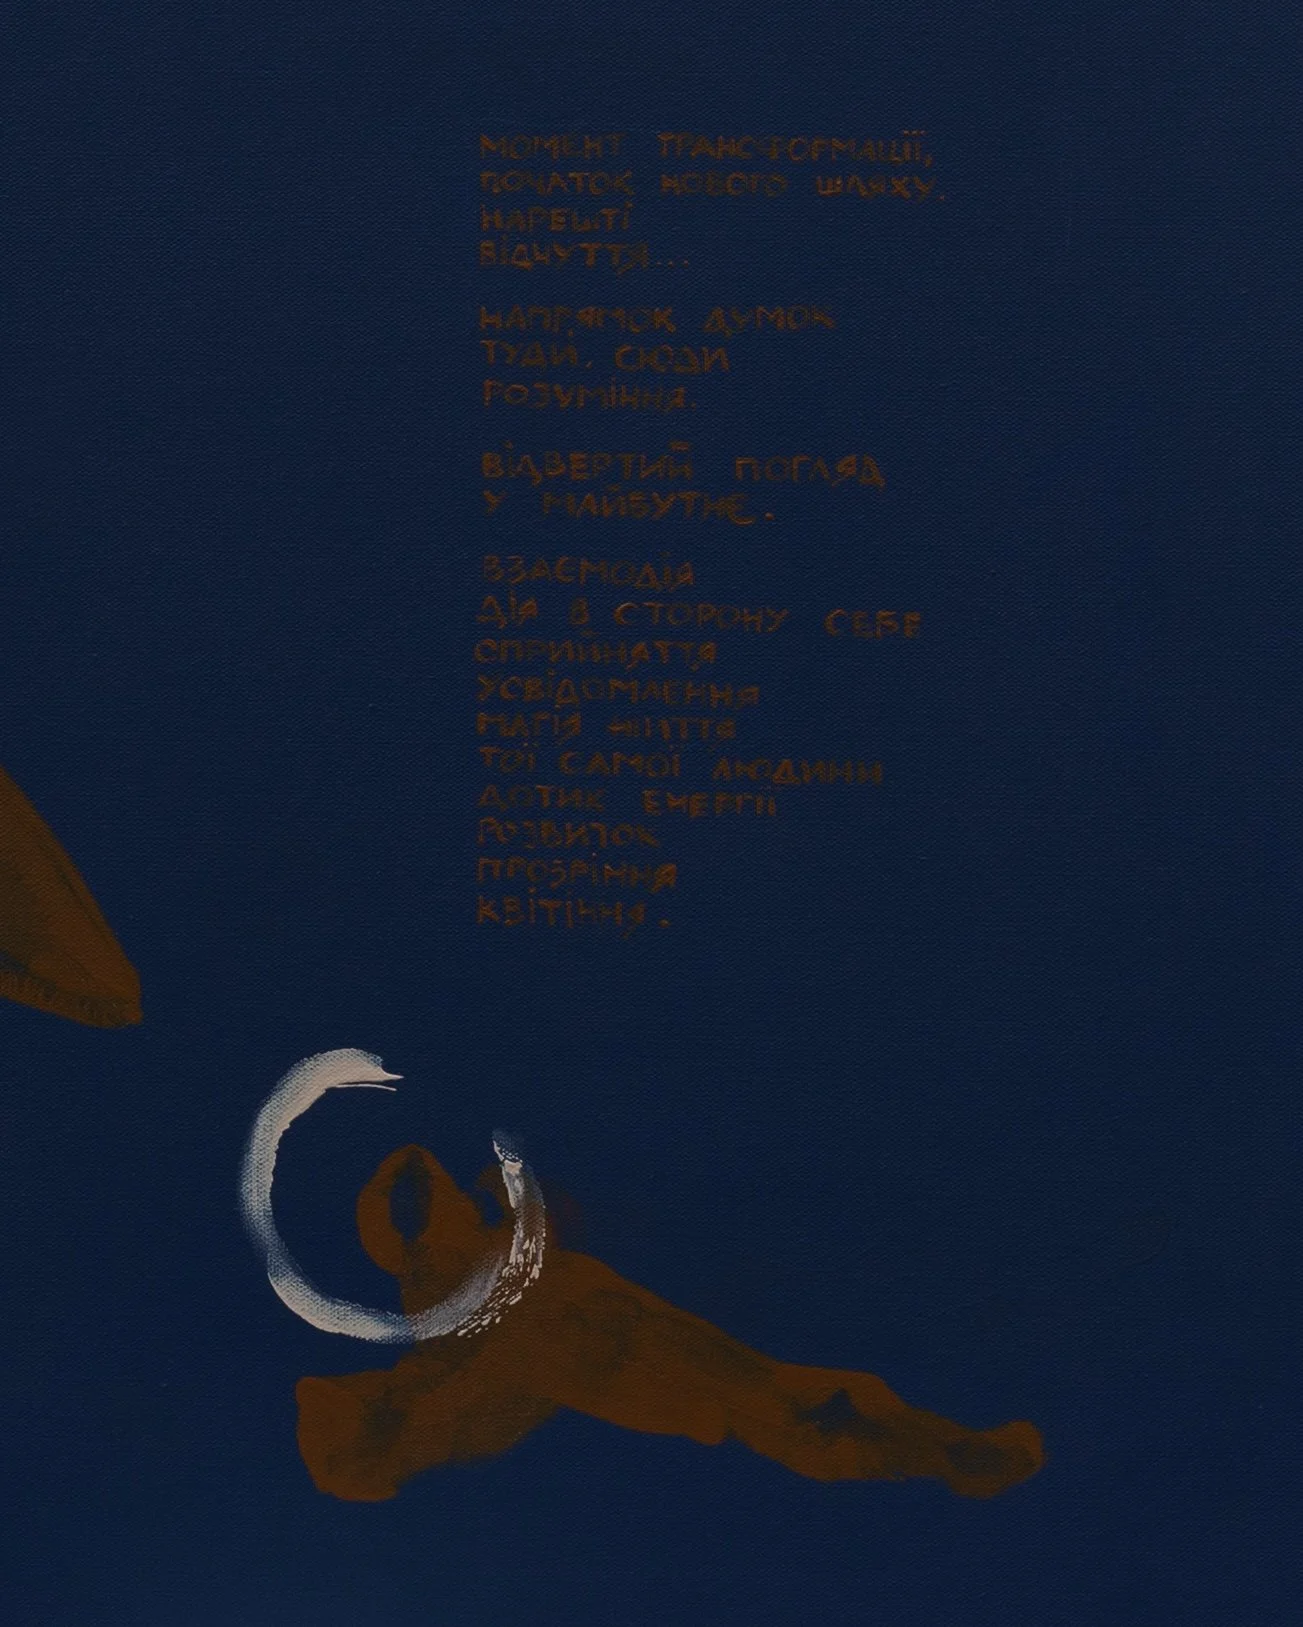 МОМЕНТ ТРАНСФОРМАЦІЇ,
ПОЧАТОК НОВОГО ШЛЯХУ.
НАРЕШТІ
ВІДЧУТТЯ...
НАПРЯМОК ДУМОК
ТУДИ, СЮДИ
РОЗУМІННЯ.
ВІДВЕРТИЙ ПОГЛЯД
У МАЙБУТНЄ.
ВЗАЄМОДІЯ
ДІЯ В СТОРОНУ СЕБЕ
СПРИЙНЯТТЯ
УСВІДОМЛЕННЯ
МАГІЯ ЖИТТЯ
ТОЇ САМОЇ ЛЮДИНИ
ДОТИК ЕНЕРГІЇ
РОЗВИТОК
ПРОЗРІННЯ
КВІТІННЯ.